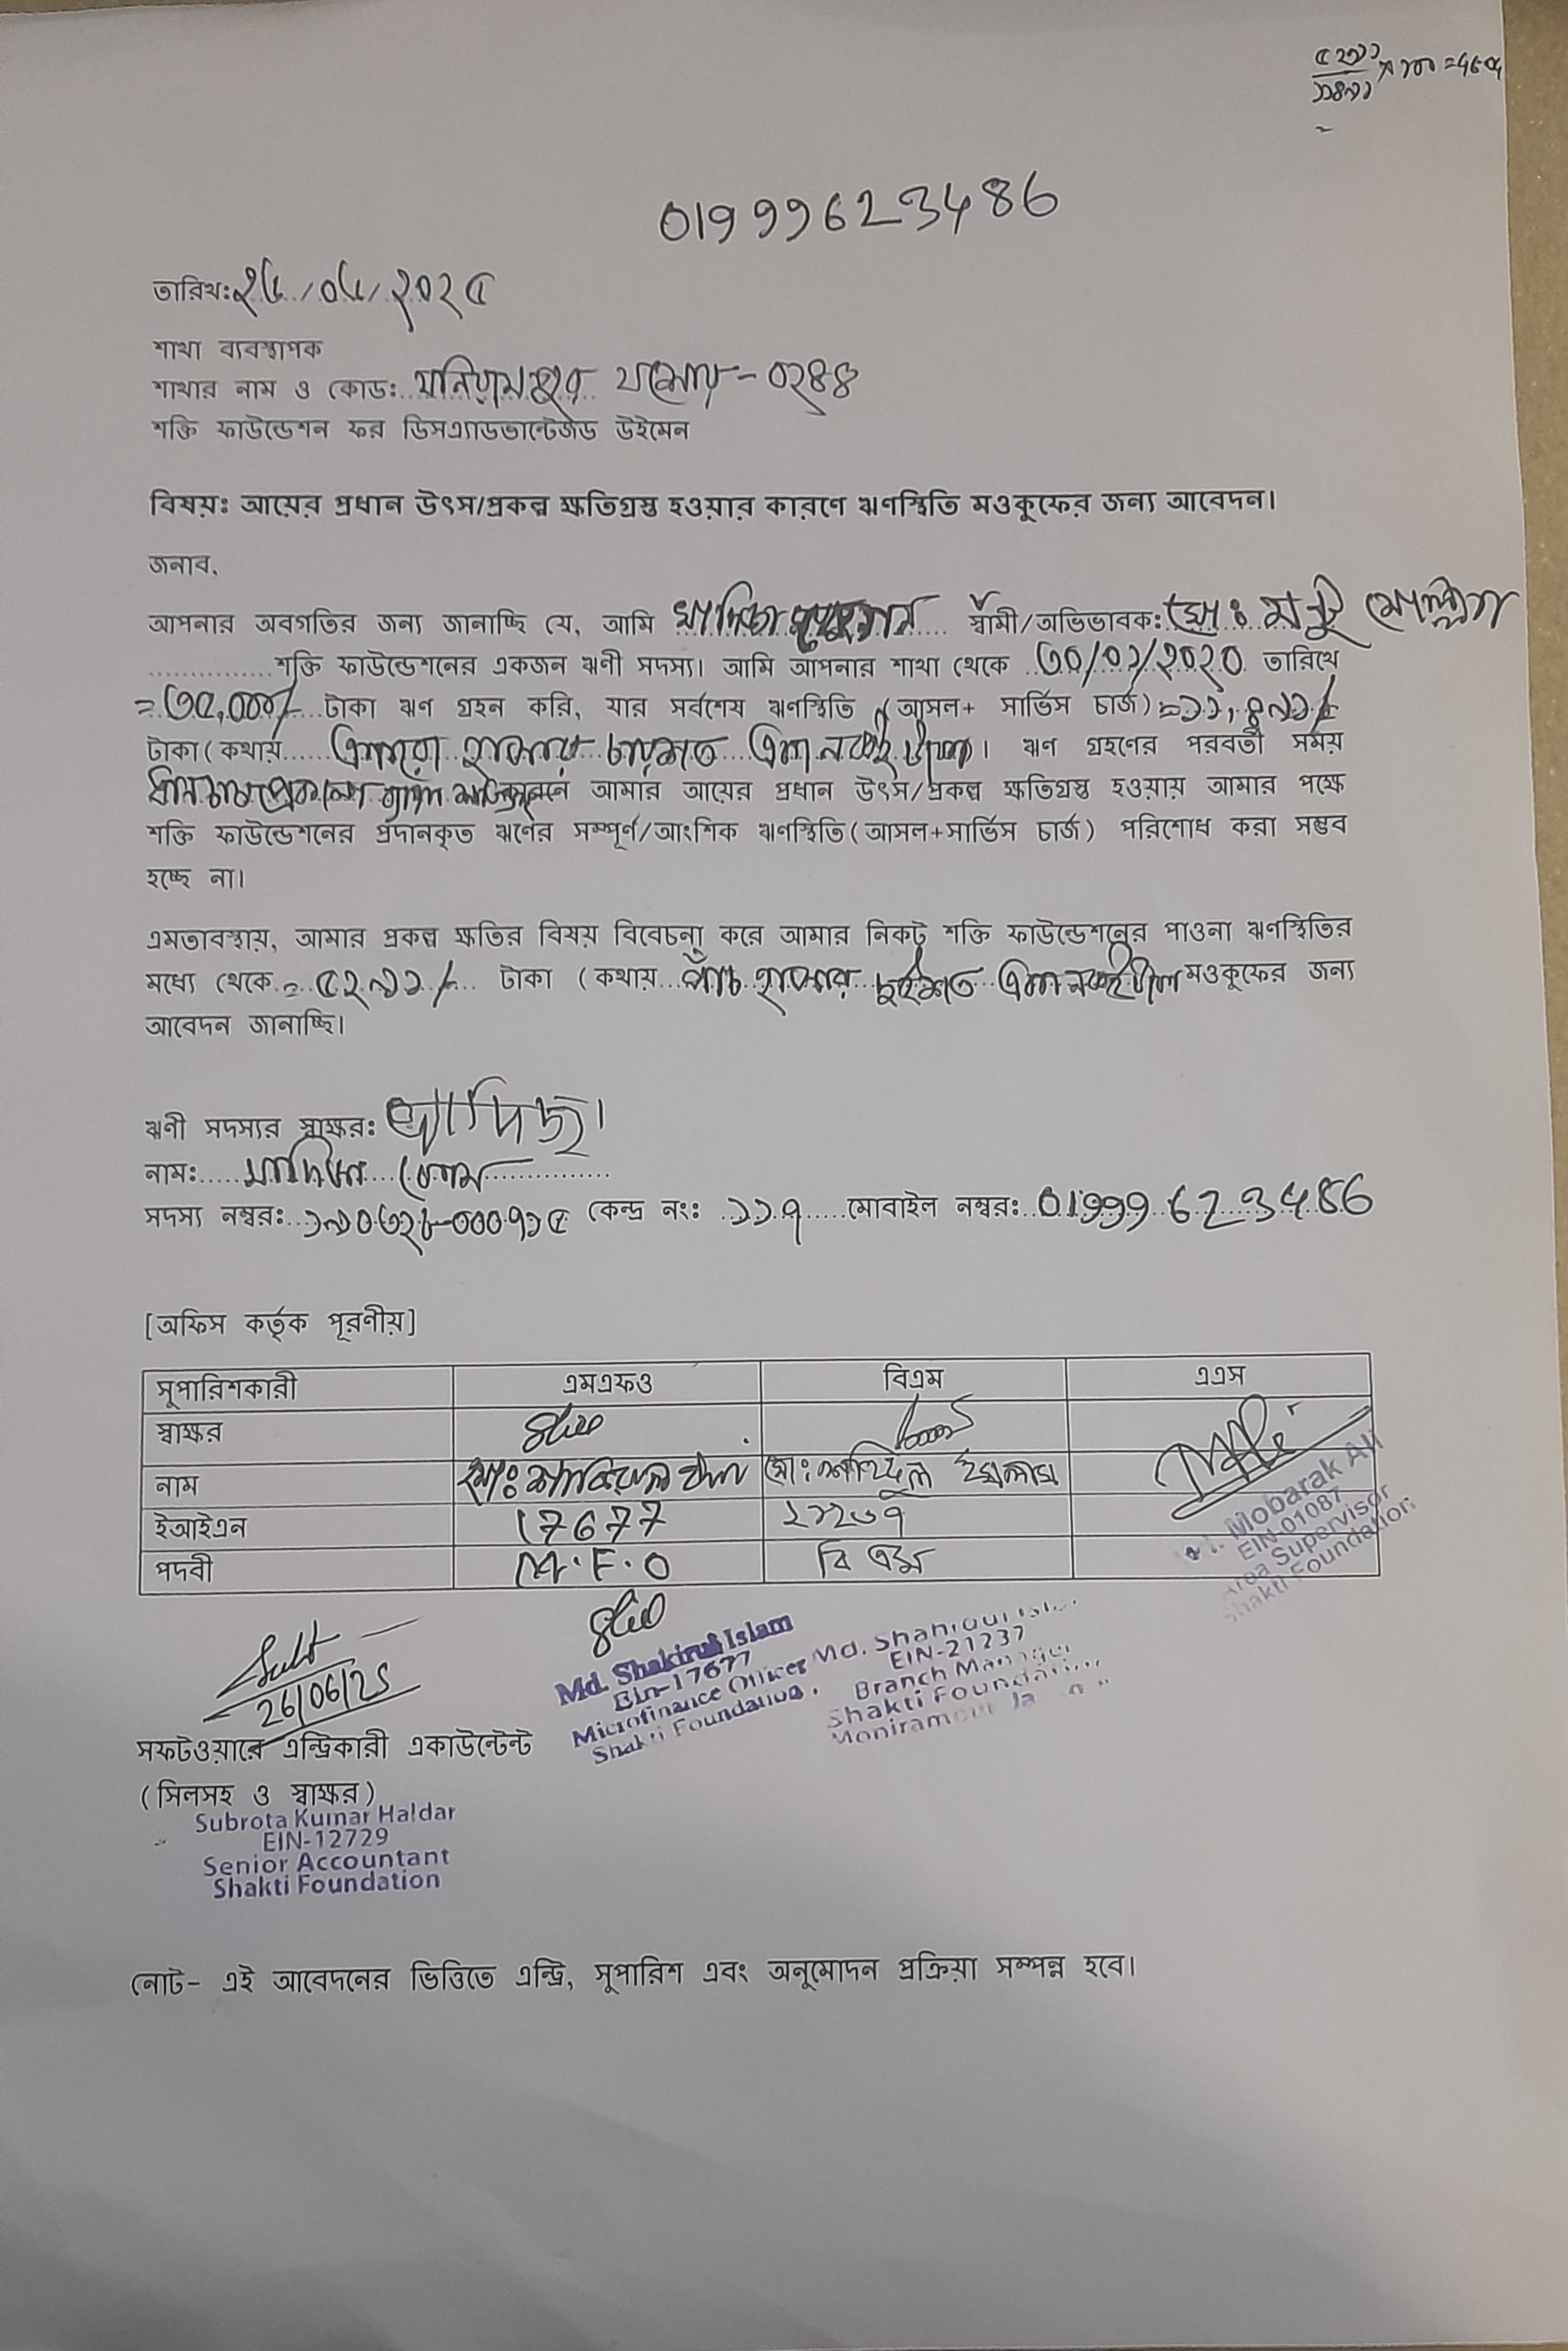 ৫২৯১
১১৪৯১ × ১০০ =
01999623486
তারিখ: ২৬/০৬/২০২৫
শাখা ব্যবস্থাপক
শাখার নাম ও কোড: মনিরামপুর যশোর - ০২৪৪
শক্তি ফাউন্ডেশন ফর ডিসএ্যাডভান্টেজড উইমেন
বিষয়: আয়ের প্রধান উৎস/প্রকল্প ক্ষতিগ্রস্ত হওয়ার কারণে ঋণস্থিতি মওকুফের জন্য আবেদন।
জনাব,
আপনার অবগতির জন্য জানাচ্ছি যে, আমি স্বামী/অভিভাবক: মো: মন্টু
শক্তি ফাউন্ডেশনের একজন ঋণী সদস্য। আমি আপনার শাখা থেকে ৩০/০১/২০২০ তারিখে
= ৩৫,০০০/- টাকা ঋণ গ্রহন করি, যার সর্বশেষ ঋণস্থিতি (আসল+ সার্ভিস চার্জ) = ১১,৪৯১/-
টাকা (কথায় এগারো হাজার চারশত একানব্বই টাকা)। ঋণ গ্রহণের পরবর্তী সময়
আমার আয়ের প্রধান উৎস/প্রকল্প ক্ষতিগ্রস্ত হওয়ায় আমার পক্ষে
শক্তি ফাউন্ডেশনের প্রদানকৃত ঋণের সম্পূর্ণ/আংশিক ঋণস্থিতি (আসল+সার্ভিস চার্জ) পরিশোধ করা সম্ভব
হচ্ছে না।
এমতাবস্থায়, আমার প্রকল্প ক্ষতির বিষয় বিবেচনা করে আমার নিকট শক্তি ফাউন্ডেশনের পাওনা ঋণস্থিতির
মধ্যে থেকে = ৫২৯১/- টাকা (কথায় পাঁচ হাজার দুইশত একানব্বই টাকা মওকুফের জন্য
আবেদন জানাচ্ছি।
ঋণী সদস্যর স্বাক্ষর: খাদিজা
নাম: খাদিজা বেগম
সদস্য নম্বর: ১৯০৩২৮-০০০৭১৫ কেন্দ্র নং: ১১৭ মোবাইল নম্বর: 01999623486
[অফিস কর্তৃক পূরণীয়]
সুপারিশকারী এমএফও বিএম এএস
স্বাক্ষর
নাম মো: মো: শহিদুল ইসলাম
ইআইএন 17677 ২১২৩৭
পদবী M.F.O বি এম
Mobarak Ali
EIN-01087
Area Supervisor
Shakti Foundation
26/06/25
Md. Shakirul Islam
Ein-17677
Microfinance Officer
Shakti Foundation.
Md. Shahidul Isl
EIN-21237
Branch Manager
Shakti Foundation
সফটওয়ারে এন্ট্রিকারী একাউন্টেন্ট
(সিলসহ ও স্বাক্ষর)
Subrota Kumar Haldar
EIN-12729
Senior Accountant
Shakti Foundation
নোট- এই আবেদনের ভিত্তিতে এন্ট্রি, সুপারিশ এবং অনুমোদন প্রক্রিয়া সম্পন্ন হবে।